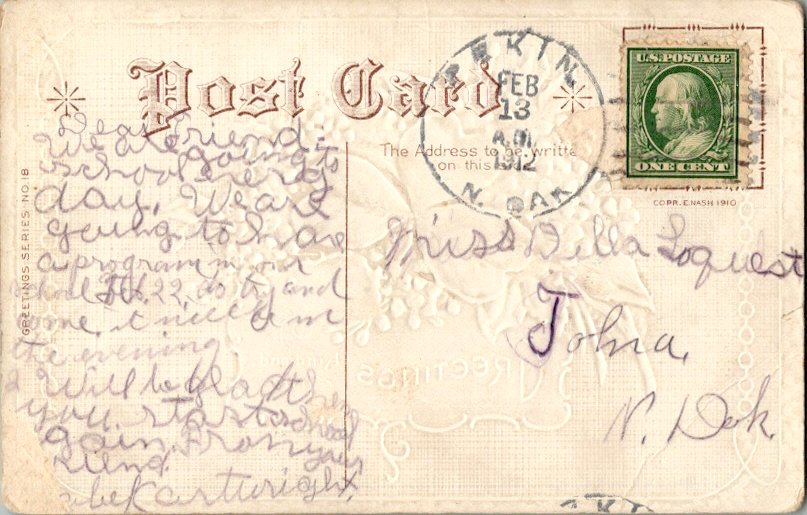 Post Card
PEKIN
FEB
13
A.M.
1912
N. DAK.
U.S. POSTAGE
ONE CENT
COPR. E. NASH 1910
The Address to be written
on this
GREETINGS SERIES NO. 18
Dear Friend:
We are going to
school every
day. We are
going to have
a program in our
school Feb. 22, so try and
come, it will be in
the evening
Will be glad when
you start school
again. From your
friend.
Cartwright.
Miss Della
Tolna,
N. Dak.
GREETINGS